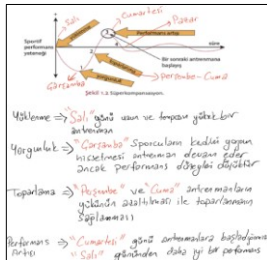 Salı
Cumartesi
Pazar
Sportif
performans
yeteneği
Performans artışı
süre
Bir sonraki antrenmana
başlayış
Çarşamba
yorgunluk
Perşembe - Cuma
Şekil 1.2. Süperkompenzasyon.
Yüklenme → "Salı" günü uzun ve tempolu yüksek bir
antrenman
Yorgunluk → "Çarşamba" Sporcuların kendini yorgun
hissetmesi antrenman devam eder
ancak performans düzeyleri düşüktür
Toparlanma → "Perşembe" ve "Cuma" antrenmanların
yükünün azaltılması ile toparlanmanın
sağlanması
Performans → "Cumartesi" günü antrenmanlara başladığımızda
Artışı "Salı" gününden daha iyi bir performans